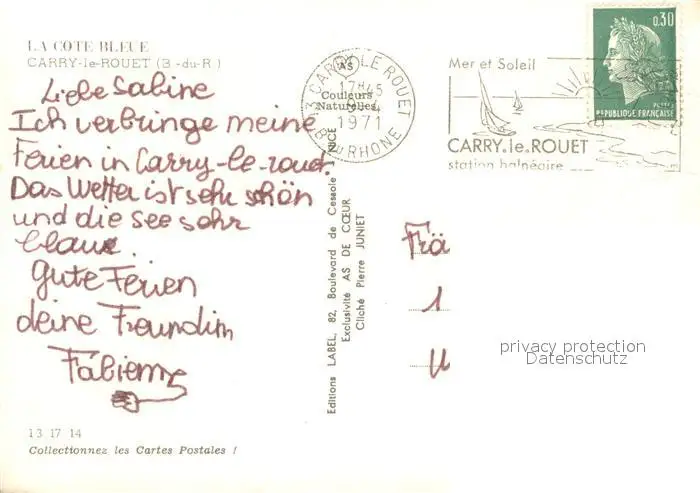 LA COTE BLEUE
CARRY-le-ROUET (B.-du-R.)
Liebe Sabine
Ich verbringe meine
Ferien in Carry-le-rouet.
Das Wetter ist sehr schön
und die see sehr
blaue.
gute Ferien
deine Freundin
Fabienne
13 17 14
Collectionnez les Cartes Postales !
Editions LABEL, 82, Boulevard de Cessole NICE
Exclusivité AS DE CŒUR
Cliché Pierre JUNIET
AS
Couleurs
Naturelles
13 CARRY LE ROUET
17H45
1971
B. DU RHONE
Mer et Soleil
CARRY.le.ROUET
station balnéaire
0,30
POSTES
REPUBLIQUE FRANÇAISE
Frä
1
privacy protection
Datenschutz